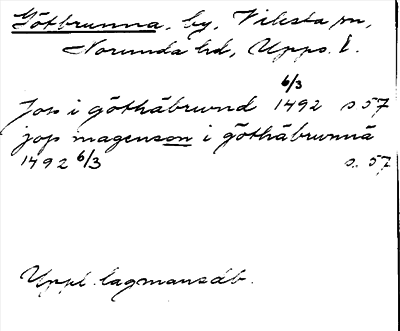 Götbrunna, by, Viksta sn,
Norunda hd, Upps. l.
6/3
Jop i göthåbrwnd 1492 s 57
jop magenson i göthåbrunnä
1492 6/3 s. 57
Uppl. lagmansdb.